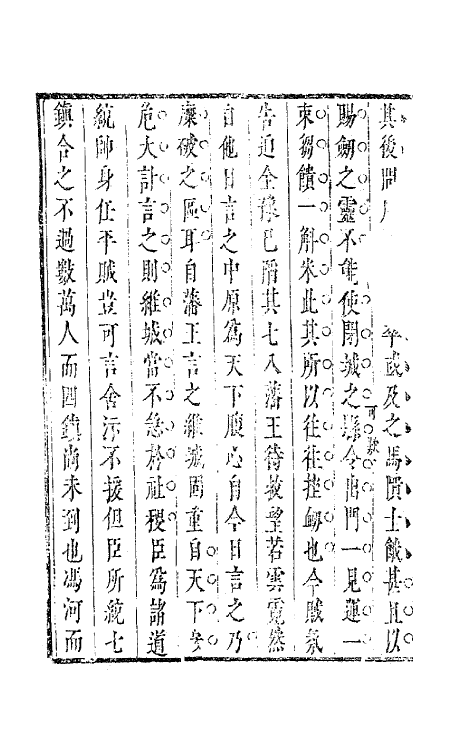 其後問　卒或及之馬隤士餓甚且以
賜劒之靈不能使閉城之縣令啟門一見運一
束芻饋一斛米此其所以往往控劒也今賊氛
告迫全豫已隋其七八藩王待救望若雲霓然
自他日言之中原爲天下腹心自今日言之乃
糜破之區耳自藩王言之維城固重自天下安
危大計言之則維城當不急於社稷臣爲諸道
統帥身任平賊豈可言舍汴不援但臣所統七
鎮合之不過數萬人而四鎮尚未到也馮河而
可歎